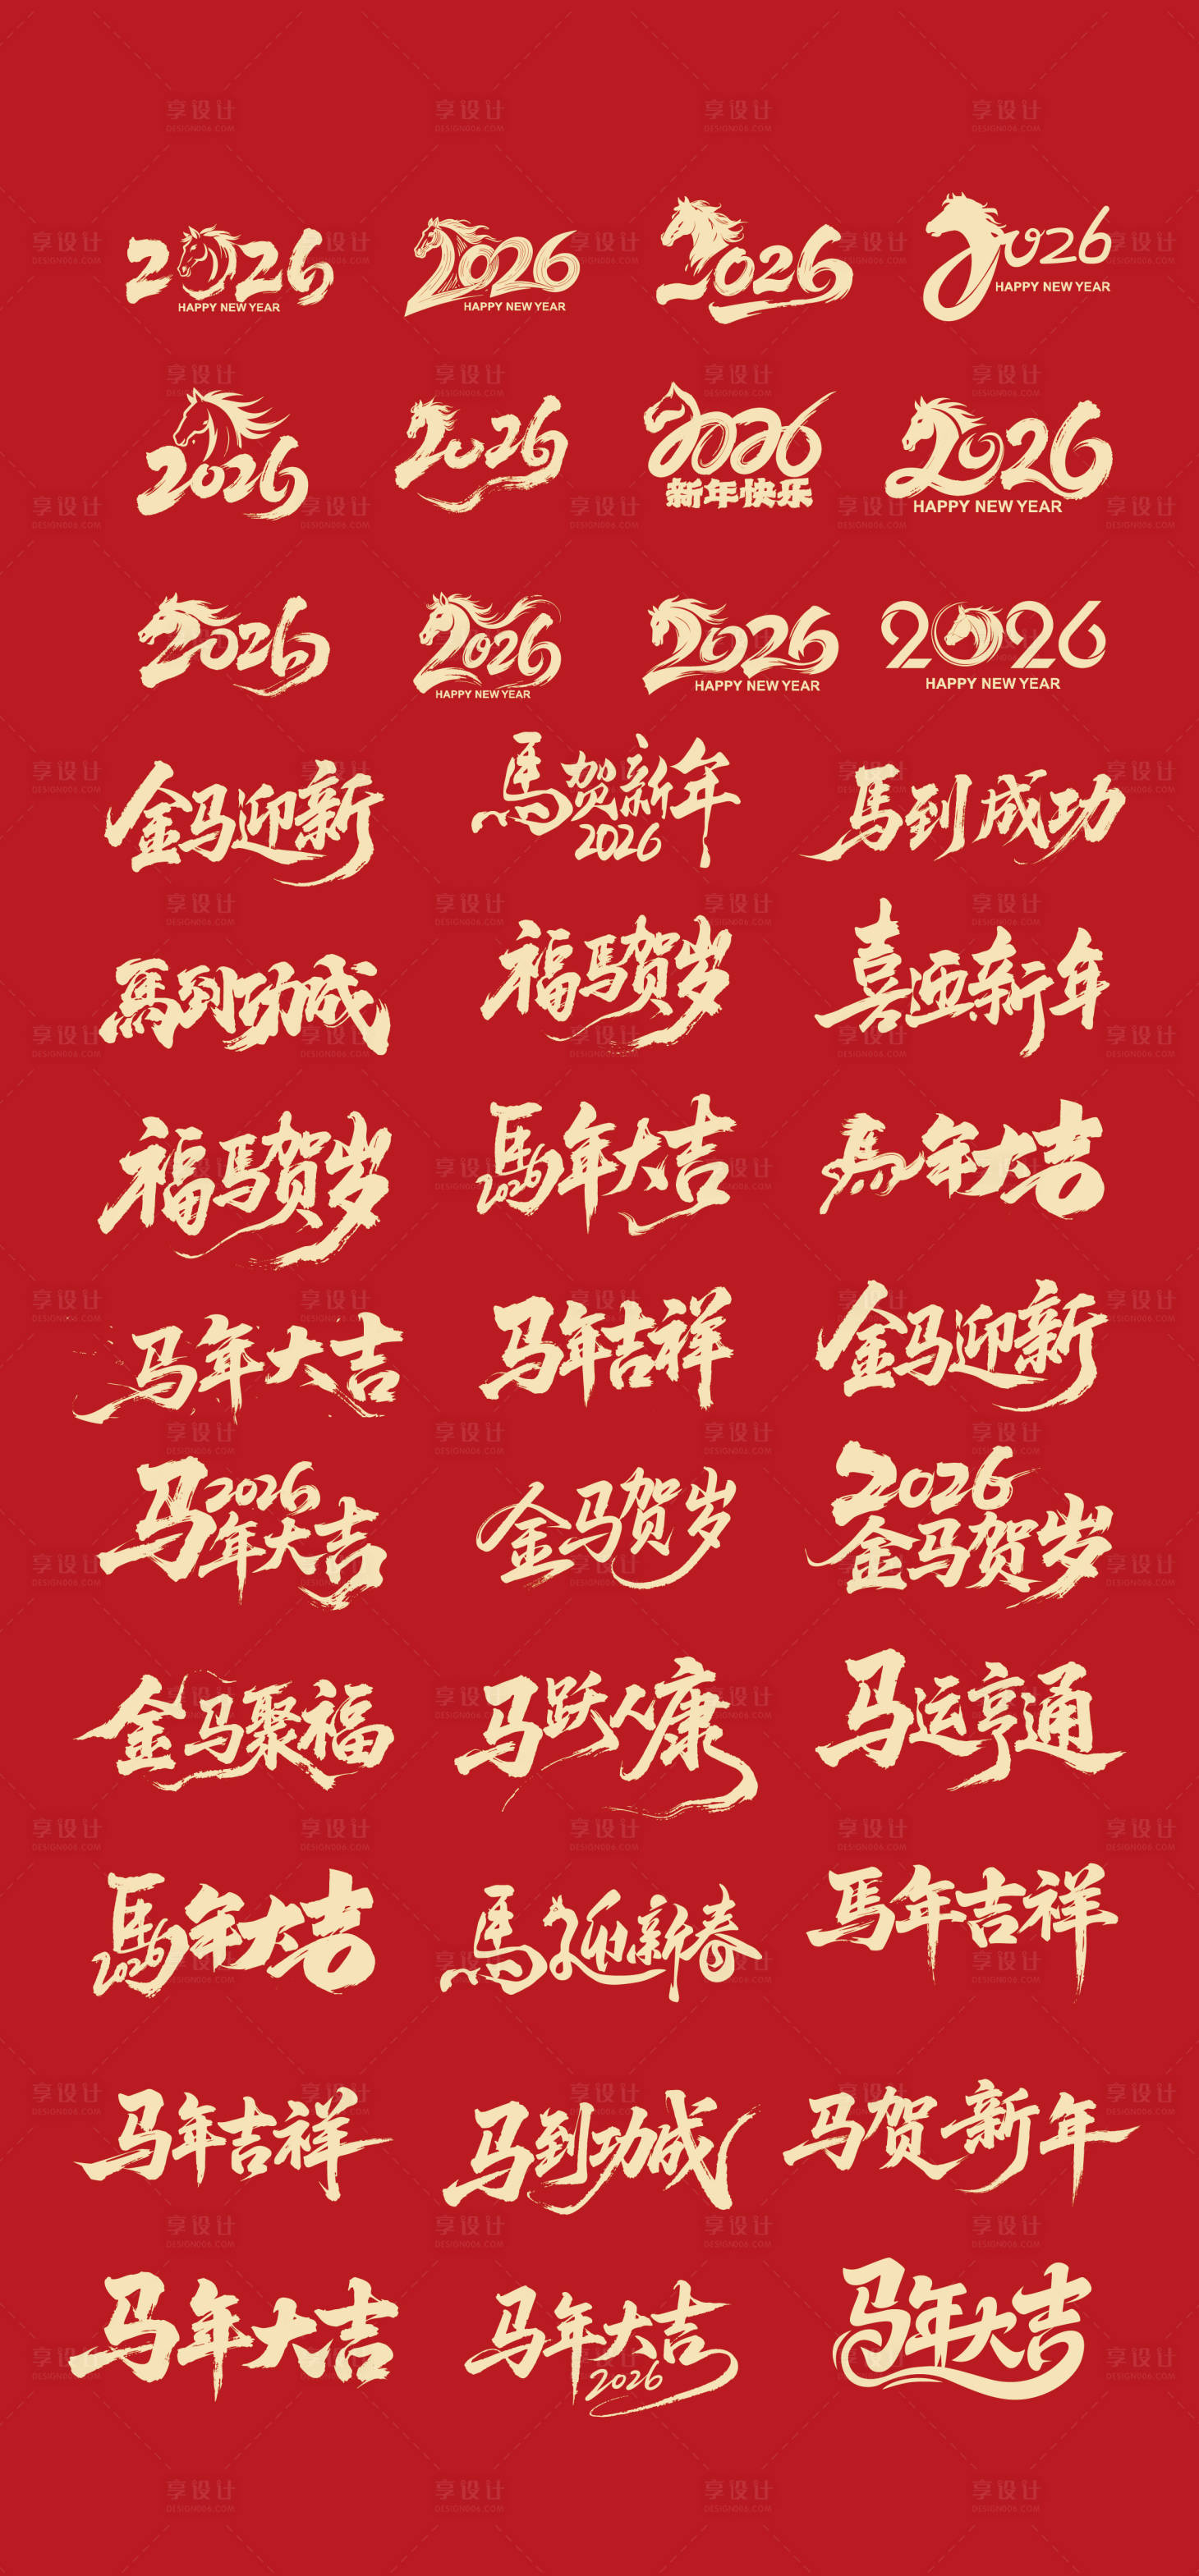 2026
HAPPY NEW YEAR
2026
HAPPY NEW YEAR
2026
2026
HAPPY NEW YEAR
2026
2026
2026
新年快乐
2026
HAPPY NEW YEAR
2026
2026
HAPPY NEW YEAR
2026
HAPPY NEW YEAR
2026
HAPPY NEW YEAR
金马迎新
馬贺新年
2026
馬到成功
馬到功成
福馬贺岁
喜迎新年
福馬贺岁
馬年大吉
2026
馬年大吉
马年大吉
马年吉祥
金马迎新
马年大吉
2026
金马贺岁
2026
金马贺岁
金马聚福
马跃人康
马运亨通
馬年大吉
2026
馬迎新春
馬年吉祥
马年吉祥
马到功成
马贺新年
马年大吉
马年大吉
2026
马年大吉
享设计
DESIGN006.COM